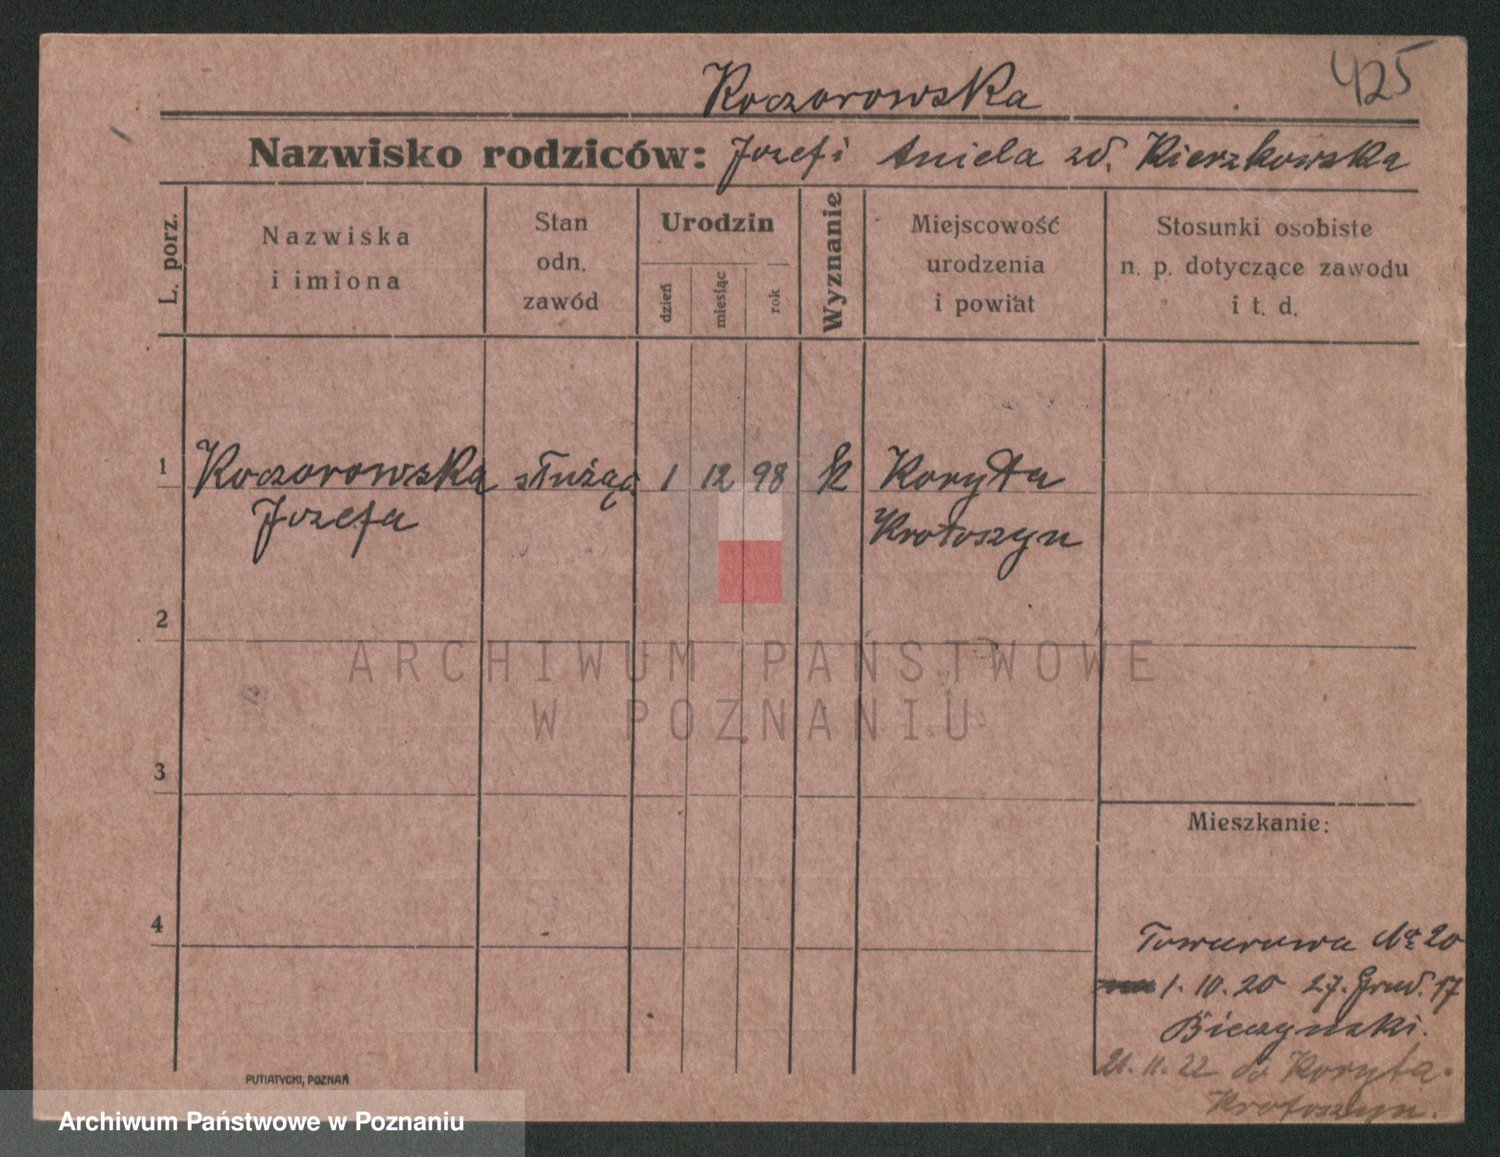 425
Koczorowska
Nazwisko rodziców: Józef i Aniela zd. Kierzkowska
L. porz.
Nazwiska
i imiona
Stan
odn.
zawód
Urodzin
dzień
miesiąc
rok
Wyznanie
Miejscowość
urodzenia
i powiat
Stosunki osobiste
n. p. dotyczące zawodu
i t. d.
1 Koczorowska służąc 1 12 98 k Koryta
Józefa Krotoszyn
2
ARCHIWUM PAŃSTWOWE
W POZNANIU
3
Mieszkanie:
4
Towarowa No 20
1. 10. 20 27. Grud. 17
Bieczynski.
21. 11. 22 do Koryta.
Krotoszyn.
PUTIATYCKI, POZNAŃ
Archiwum Państwowe w Poznaniu